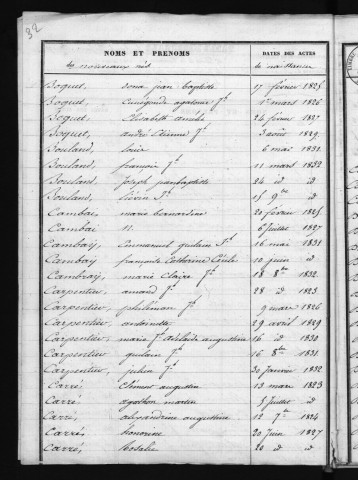 32
NOMS ET PRENOMS DATES DES ACTES
des nouveaux nés de naissance
Boquet, jean baptiste 17 février 1825
Boquet, Cunégonde agatone Jh 1er mars 1826
Boquet, Elisabeth amélie 24 février 1827
Boquet, andré Etienne Jh 3 août 1829
Boulard, louis 6 mai 1831
Boulard, françois Jh 11 mars 1832
Boulard, Joseph jean baptiste 24 id id
Boulard, liévin Jh 15 9bre id
Cambai, marie bernardine 20 février 1825
Cambai n. 6 Juillet 1827
Cambay, Emmanuel guilain Jh 16 mai 1831
Cambay françoise Catherine Cécile 10 juin id
Cambray, marie Claire Jh 18 8bre 1832
Carpentier, amand Jh 28 id 1823
Carpentier, philémon Jh 9 mars 1826
Carpentier antoinette 29 avril 1829
Carpentier, marie Jh adélaïde augustine 16 id 1830
Carpentier guilain Jh 16 8bre 1831
Carpentier, julien Jh 30 Janvier 1832
Carré Clément augustin 13 mars 1823
Carré, agathon martin 5 Juillet id
Carré, alexandrine augustine 12 7bre 1824
Carré, honorine 20 Juin 1827
Carré, Rosalie 20 id id